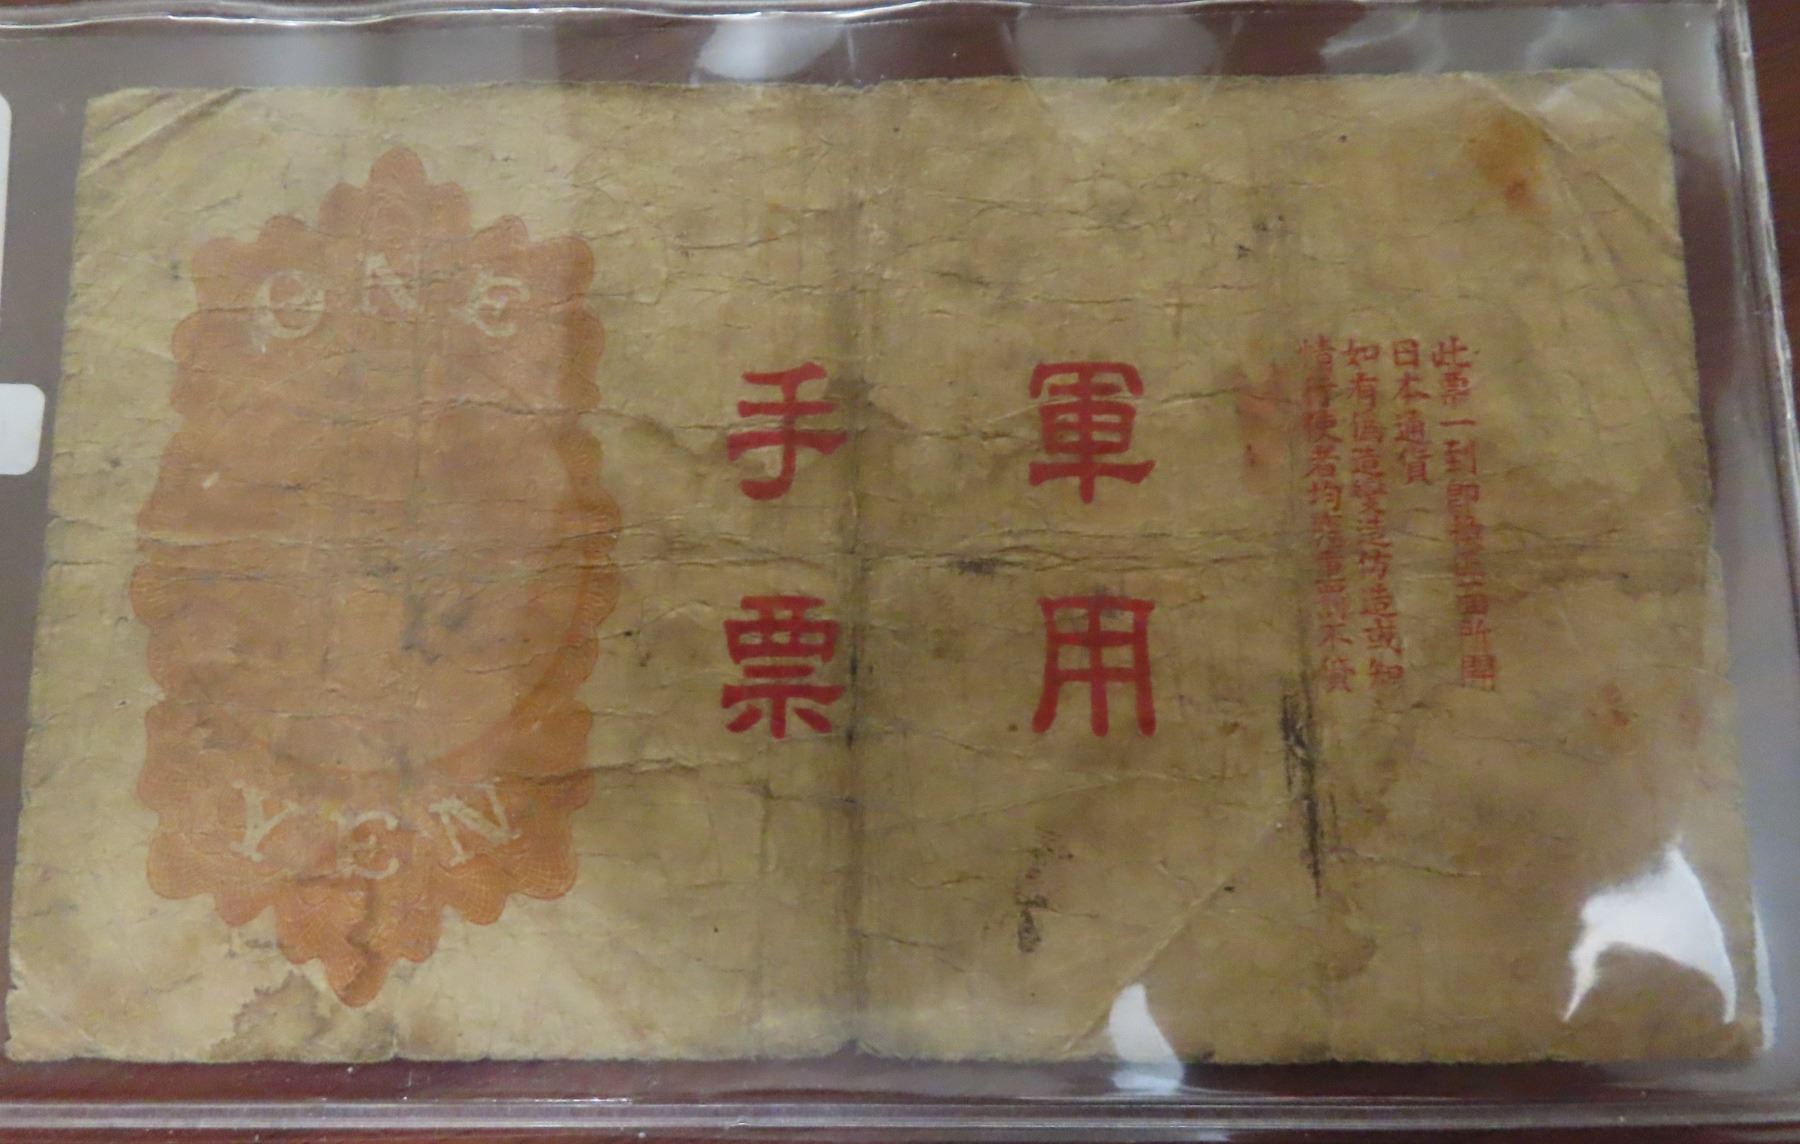 ONE
YEN
軍用
手票
此票一到即換正面所開
日本通貨
如有偽造變造仿造或知
情行使者均應重罰不貸